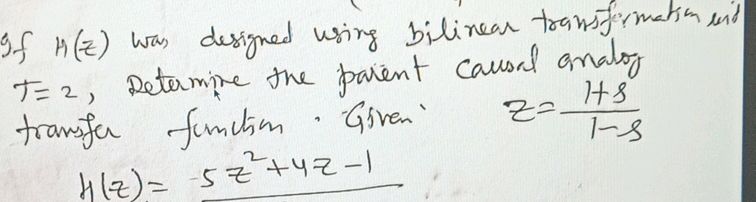 If H(z) was designed using bilinear transformation with
T=2, Determine the parent causal analog
transfer function. Given z = (1+s)/(1-s)
H(z) = 5z²+4z-1